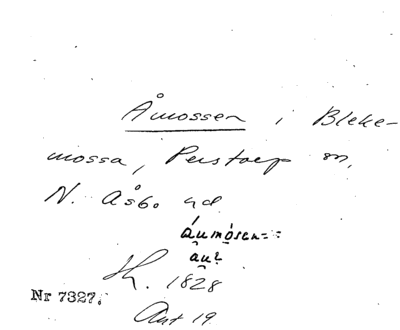 Åmossen i Bleke-
mossa, Perstorp sn,
N. Åsbo hd
áumósen=:
âu?
Hk. 1828
Nr 7327.
Akt 19